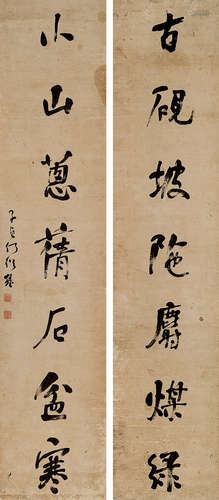 古硯坡陁麝煤綠
小山蔥蒨石盆寒
子貞何紹基